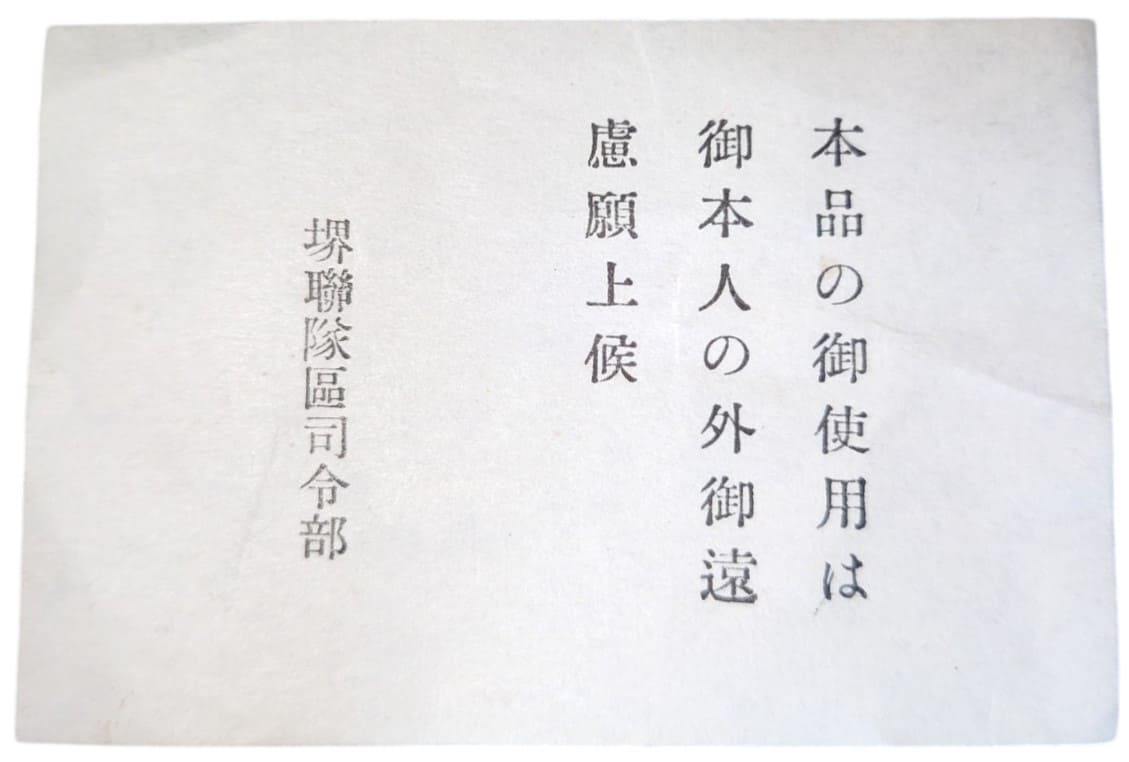 本品の御使用は
御本人の外御遠
慮願上候
堺聯隊區司令部